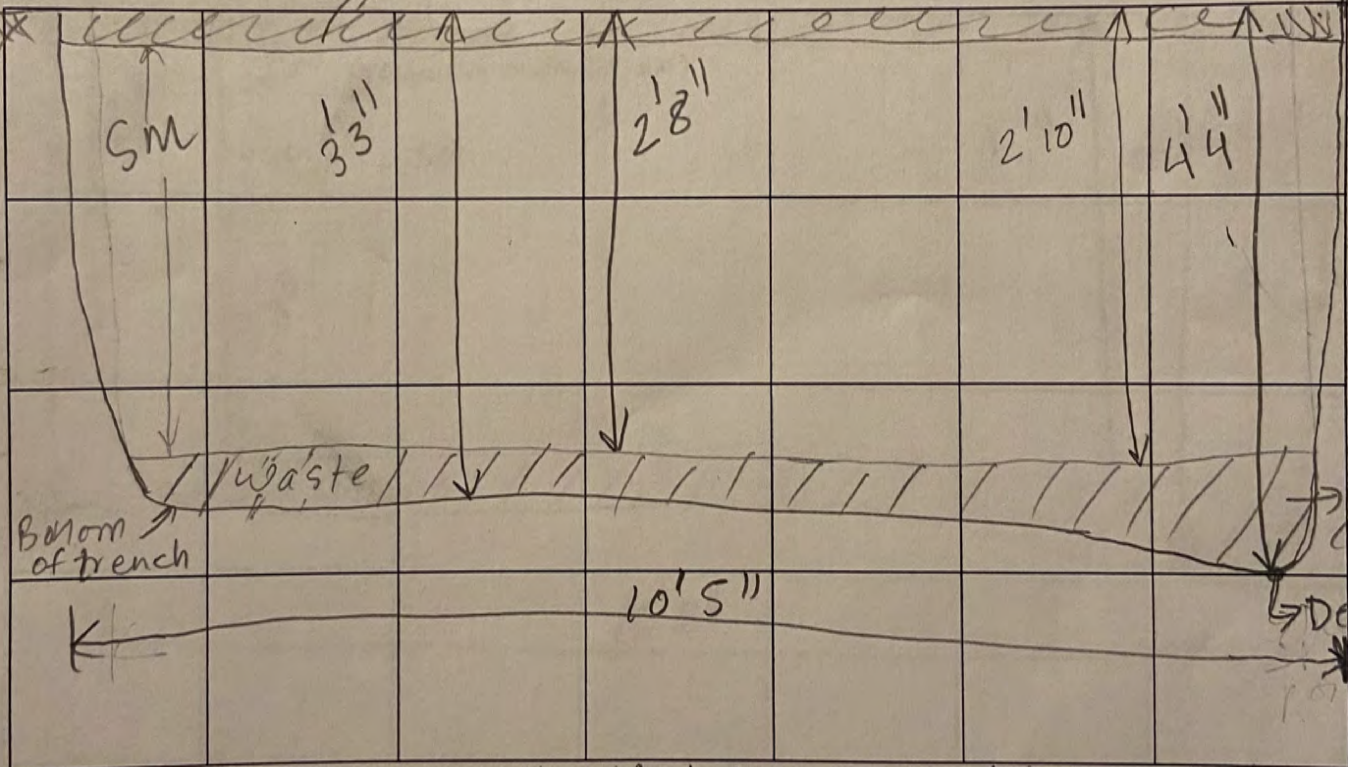 SM
3'3"
2'8"
2'10"
4'4"
waste
Bottom
of trench
10'5"